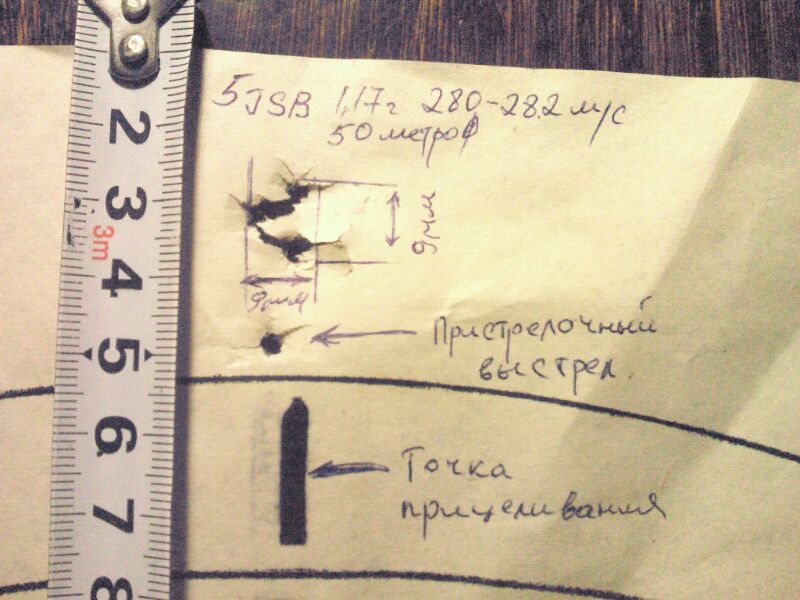 5 JSB 1,17г 280-282 м/с
50 метров
9мм
9мм
Пристрелочный
выстрел.
Точка
прицеливания
2
3
3m
4
5
6
7
8